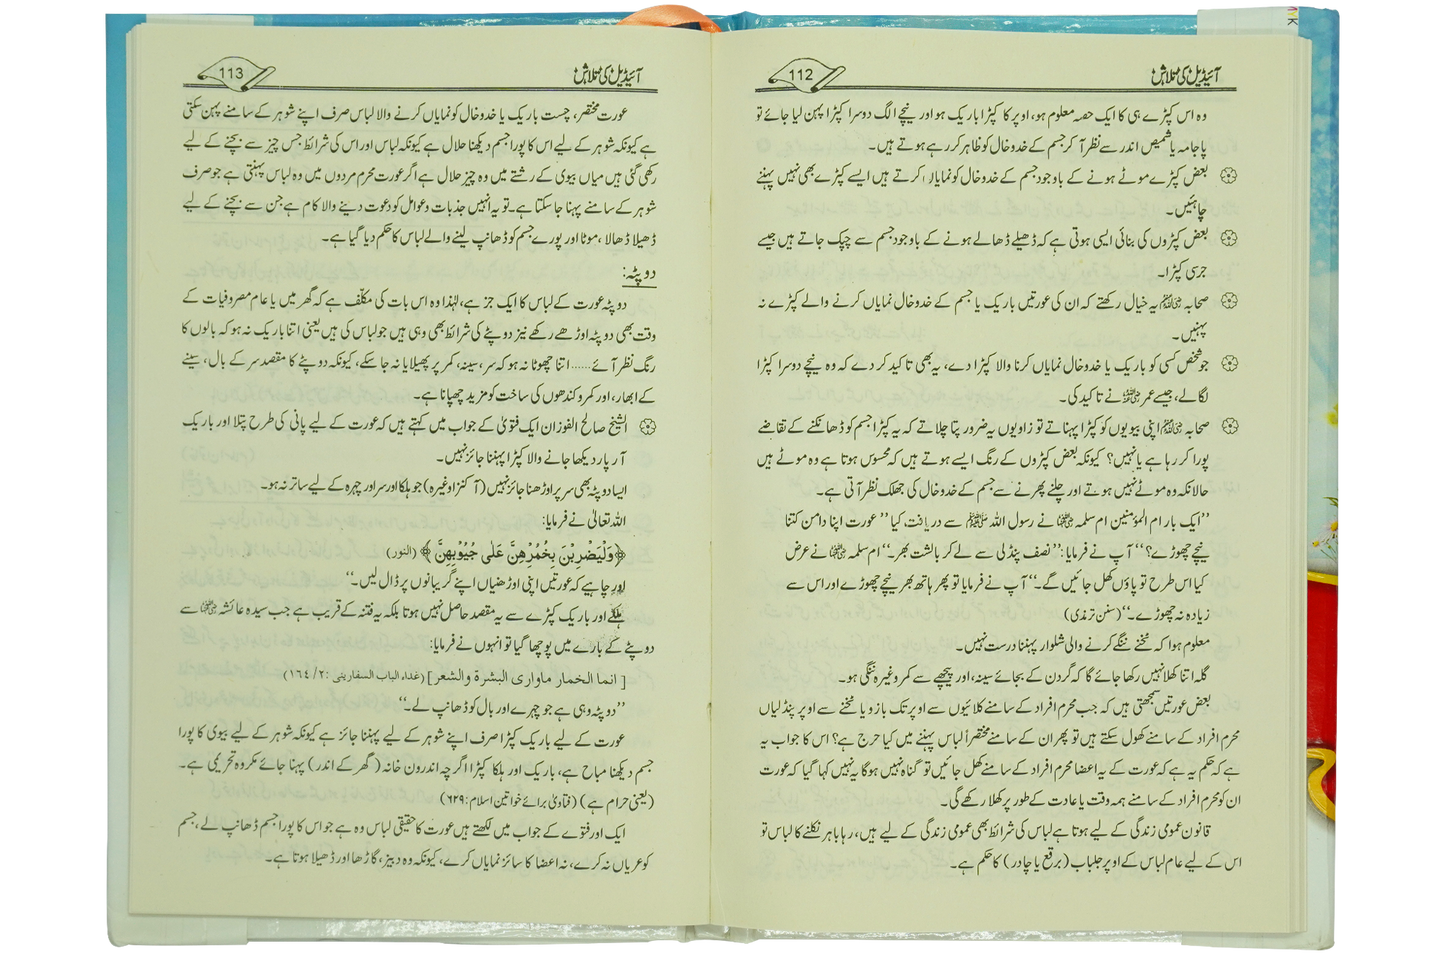 آئیڈیل کی تلاش
112
وہ اس کپڑے ہی کا ایک حصہ معلوم ہو، اوپر کا کپڑا باریک ہو اور نیچے الگ دوسرا کپڑا پہن لیا جائے تو
پاجامہ یا شمیض اندر سے نظر آ کر جسم کے خدوخال کو ظاہر کر رہے ہوتے ہیں۔
بعض کپڑے موٹے ہونے کے باوجود جسم کے خدوخال کو نمایاں کرتے ہیں ایسے کپڑے بھی نہیں پہننے
چاہئیں۔
بعض کپڑوں کی بنائی ایسی ہوتی ہے کہ ڈھیلے ڈھالے ہونے کے باوجود جسم سے چپک جاتے ہیں جیسے
جرسی کپڑا۔
صحابہ ﷢ یہ خیال رکھتے کہ ان کی عورتیں باریک یا جسم کے خدوخال نمایاں کرنے والے کپڑے نہ
پہنیں۔
جو شخص کسی کو باریک یا خدوخال نمایاں کرنا والا کپڑا دے، یہ بھی تاکید کر دے کہ وہ نیچے دوسرا کپڑا
لگا لے، جیسے عمر ﷜ نے تاکید کی۔
صحابہ ﷢ اپنی بیویوں کو کپڑا پہناتے تو زاویوں یہ ضرور پتا چلاتے کہ یہ کپڑا جسم کو ڈھانکنے کے تقاضے
پورا کر رہا ہے یا نہیں؟ کیونکہ بعض کپڑوں کے رنگ ایسے ہوتے ہیں کہ محسوس ہوتا ہے وہ موٹے ہیں
حالانکہ وہ موٹے نہیں ہوتے اور چلنے پھرنے سے جسم کے خدوخال کی جھلک نظر آتی ہے۔
’’ایک بار ام المؤمنین ام سلمہ ﷞ نے رسول اللہ ﷺ سے دریافت کیا’’ عورت اپنا دامن کتنا
نیچے چھوڑے؟‘‘ آپ نے فرمایا: ’’نصف پنڈلی سے لے کر بالشت بھر۔‘‘ ام سلمہ ﷞ نے عرض
کیا اس طرح تو پاؤں کھل جائیں گے۔‘‘ آپ نے فرمایا تو پھر ہاتھ بھر نیچے چھوڑے اور اس سے
زیادہ نہ چھوڑے۔‘‘ (سنن ترمذی)
معلوم ہوا کہ ٹخنے ننگے کرنے والی شلوار پہننا درست نہیں۔
گلہ اتنا کھلا نہیں رکھا جائے گا کہ گردن کے بجائے سینہ، اور پیچھے سے کمر وغیرہ ننگی ہو۔
بعض عورتیں سمجھتی ہیں کہ جب محرم افراد کے سامنے کلائیوں سے اوپر تک بازو یا ٹخنے سے اوپر پنڈلیاں
محرم افراد کے سامنے کھول سکتے ہیں تو پھر ان کے سامنے مختصراً لباس پہننے میں کیا حرج ہے؟ اس کا جواب یہ
ہے کہ حکم یہ ہے کہ عورت کے یہ اعضا محرم افراد کے سامنے کھل جائیں تو گناہ نہیں ہوگا یہ نہیں کہا گیا کہ عورت
ان کو محرم افراد کے سامنے ہمہ وقت یا عادت کے طور پر کھلا رکھے گی۔
قانون عمومی زندگی کے لیے ہوتا ہے لباس کی شرائط بھی عمومی زندگی کے لیے ہیں، رہا باہر نکلنے کا لباس تو
اس کے لیے عام لباس کے اوپر جلباب (برقع یا چادر) کا حکم ہے۔
آئیڈیل کی تلاش
113
عورت مختصر، چست باریک یا خدوخال کو نمایاں کرنے والا لباس صرف اپنے شوہر کے سامنے پہن سکتی
ہے کیونکہ شوہر کے لیے اس کا پورا جسم دیکھنا حلال ہے کیونکہ لباس اور اس کی شرائط جس چیز سے بچنے کے لیے
رکھی گئی ہیں میاں بیوی کے رشتے میں وہ چیز حلال ہے اگر عورت محرم مردوں میں وہ لباس پہنتی ہے جو صرف
شوہر کے سامنے پہنا جا سکتا ہے۔ تو یہ انہیں جذبات و عوامل کو دعوت دینے والا کام ہے جن سے بچنے کے لیے
ڈھیلا ڈھالا، موٹا اور پورے جسم کو ڈھانپ لینے والے لباس کا حکم دیا گیا ہے۔
دوپٹہ:
دوپٹہ عورت کے لباس کا ایک جز ہے، لہٰذا وہ اس بات کی مکلّف ہے کہ گھر میں یا عام مصروفیات کے
وقت بھی دوپٹہ اوڑھے رکھے نیز دوپٹے کی شرائط بھی وہی ہیں جو لباس کی ہیں یعنی اتنا باریک نہ ہو کہ بالوں کا
رنگ نظر آئے...... اتنا چھوٹا نہ ہو کہ سر، سینہ، کمر پر پھیلایا نہ جا سکے، کیونکہ دوپٹے کا مقصد سر کے بال، سینے
کے ابھار، اور کمر و کندھوں کی ساخت کو مزید چھپانا ہے۔
الشیخ صالح الفوزان ایک فتویٰ کے جواب میں کہتے ہیں کہ عورت کے لیے پانی کی طرح پتلا اور باریک
آر پار دیکھا جانے والا کپڑا پہننا جائز نہیں۔
ایسا دوپٹہ بھی سر پر اوڑھنا جائز نہیں (آ کنز وغیرہ) جو ہلکا اور سر اور چہرہ کے لیے ساتر نہ ہو۔
اللہ تعالیٰ نے فرمایا:
﴿وَلْيَضْرِبْنَ بِخُمُرِهِنَّ عَلٰى جُيُوْبِهِنَّ﴾ (النور)
اور چاہیے کہ عورتیں اپنی اوڑھنیاں اپنے گریبانوں پر ڈال لیں۔‘‘
ہلکے اور باریک کپڑے سے یہ مقصد حاصل نہیں ہوتا بلکہ یہ فتنہ کے قریب ہے جب سیدہ عائشہ ﷞ سے
دوپٹے کے بارے میں پوچھا گیا تو انہوں نے فرمایا:
[ انما الخمار ماواری البشرة والشعر ] (غداء الباب السفارینی :٢/ ١٦٤)
’’دوپٹہ وہی ہے جو چہرے اور بال کو ڈھانپ لے۔‘‘
عورت کے لیے باریک کپڑا صرف اپنے شوہر کے لیے پہننا جائز ہے کیونکہ شوہر کے لیے بیوی کا پورا
جسم دیکھنا مباح ہے، باریک اور ہلکا کپڑا اگرچہ اندرون خانہ (گھر کے اندر) پہنا جائے مکروہ تحریمی ہے۔
(یعنی حرام ہے) (فتاویٰ برائے خواتین اسلام: ۶۲۹)
ایک اور فتوے کے جواب میں لکھتے ہیں عورت کا حقیقی لباس وہ ہے جو اس کا پورا جسم ڈھانپ لے، جسم
کو عریاں نہ کرے، نہ اعضا کا سائز نمایاں کرے، کیونکہ وہ دبیز، گاڑھا اور ڈھیلا ہوتا ہے۔